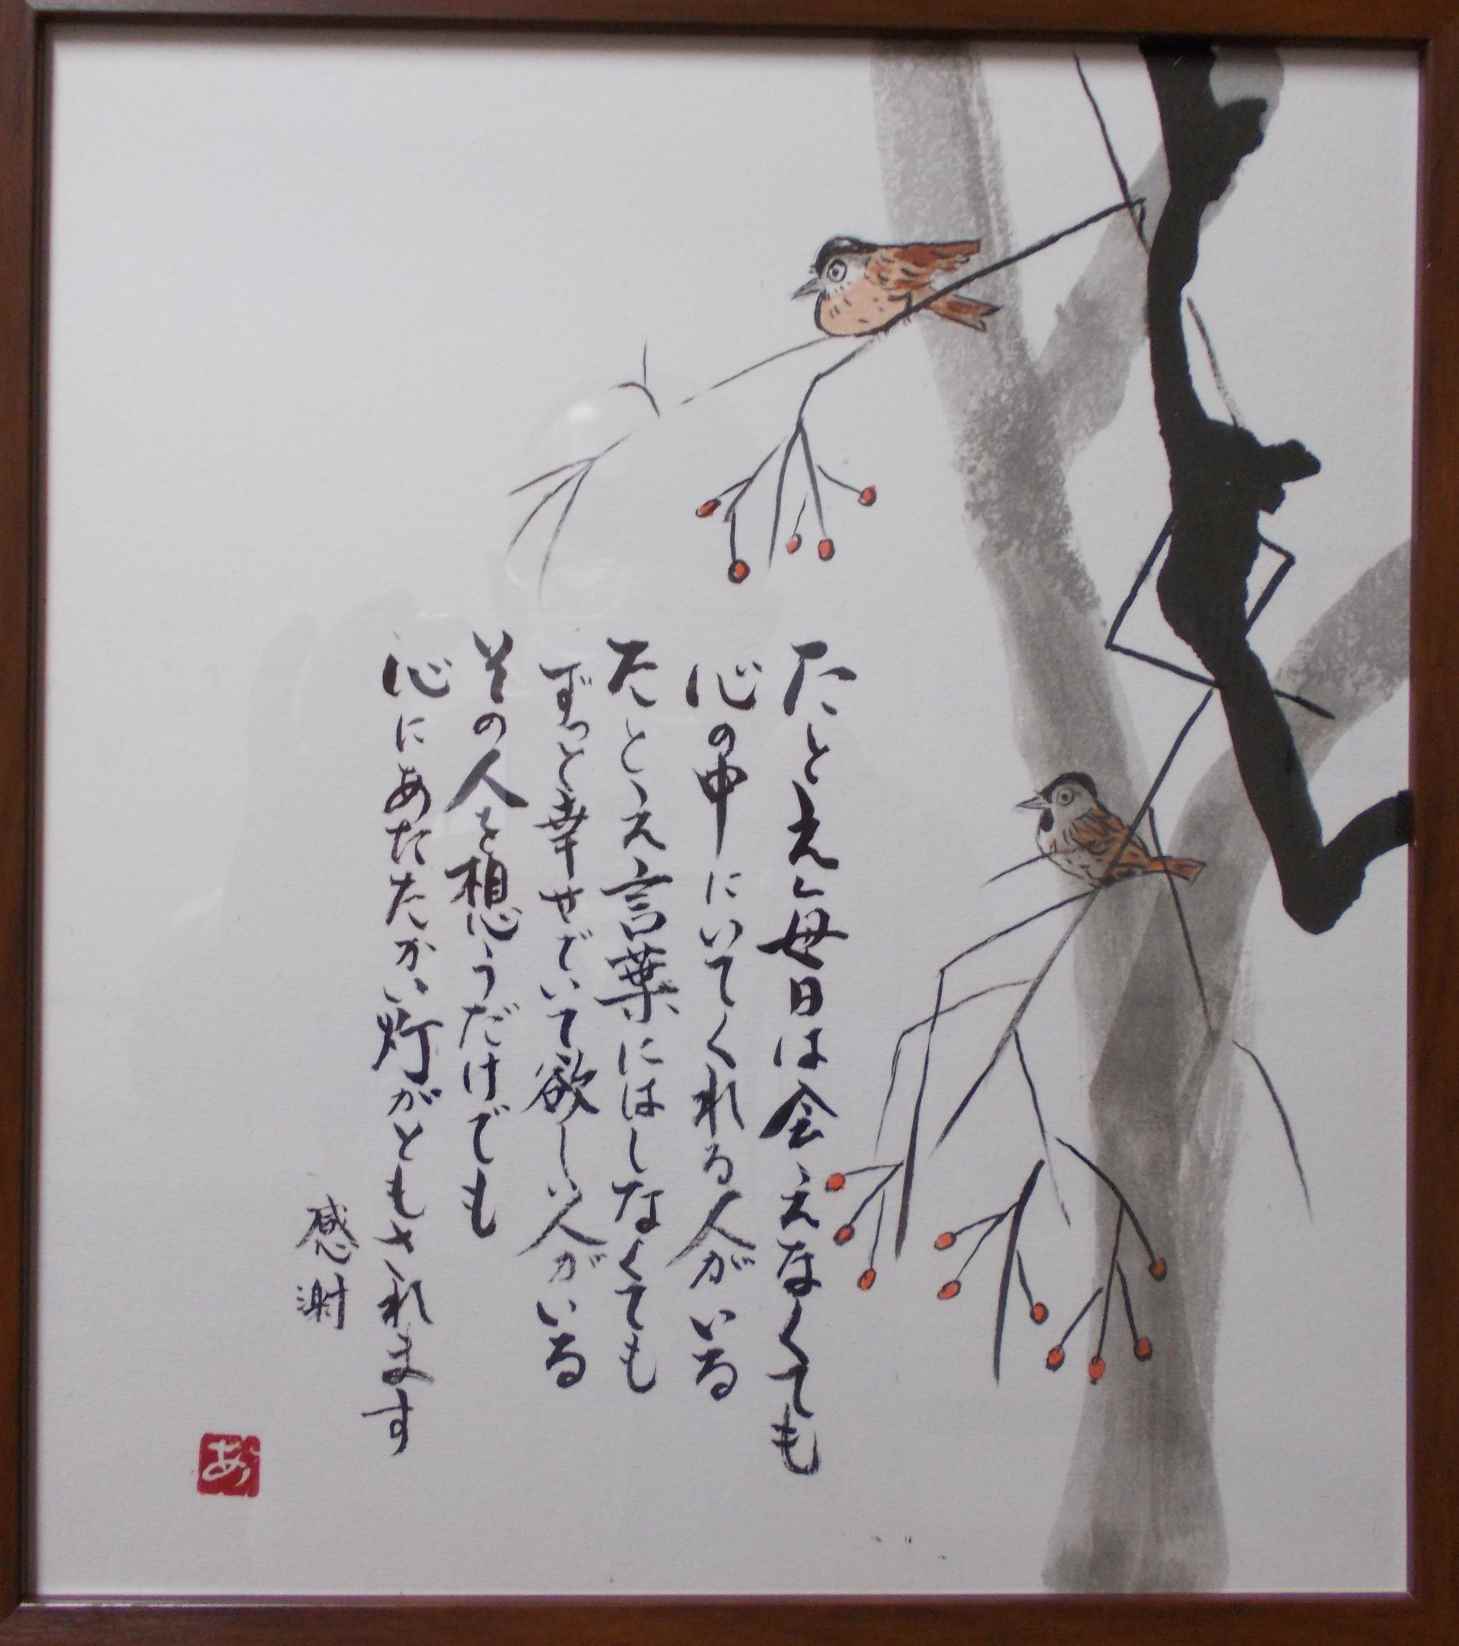 たとえ毎日は会えなくても
心の中にいてくれる人がいる
たとえ言葉にはしなくても
ずっと幸せでいて欲しい人がいる
その人を想うだけでも
心にあたたかい灯がともされます
感謝
あ